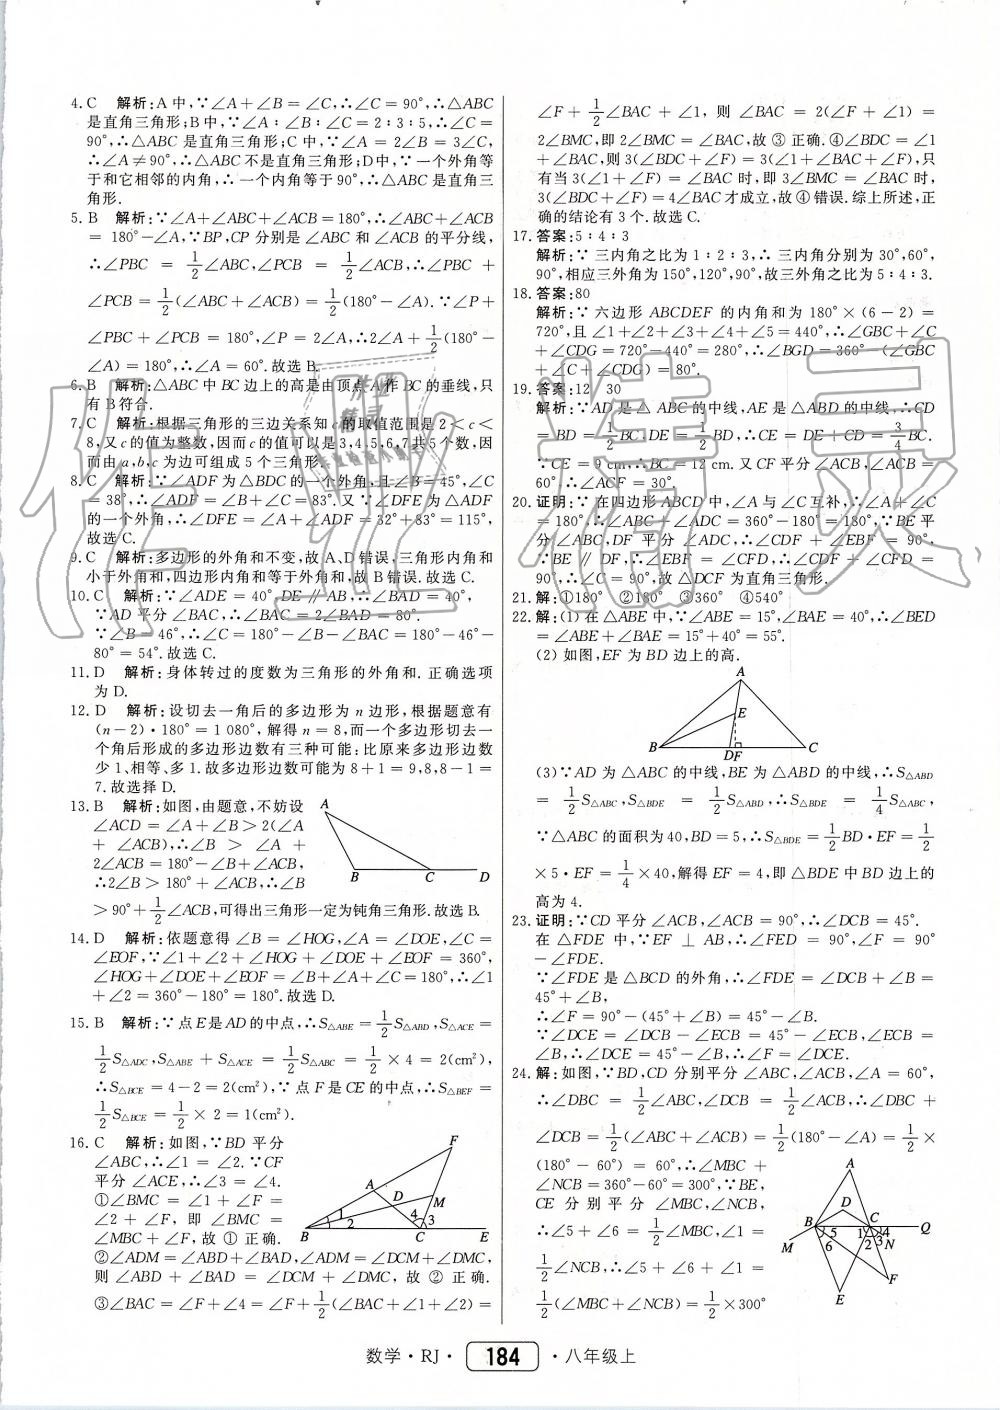 4. C　解析:A中,∵∠A+∠B=∠C,∴∠C=90°,∴△ABC
是直角三角形;B中,∵∠A∶∠B∶∠C=2∶3∶5,∴∠C=
90°,∴△ABC 是直角三角形;C中,∵∠A=2∠B=3∠C,
∴∠A≠90°,∴△ABC不是直角三角形;D中,∵一个外角等
于和它相邻的内角,∴一个内角等于90°,∴△ABC是直角三
角形.
5. B　解析:∵∠A+∠ABC+∠ACB=180°,∴∠ABC+∠ACB
=180°-∠A,∵BP,CP分别是∠ABC和∠ACB的平分线,
∴∠PBC=1/2∠ABC,∠PCB=1/2∠ACB,∴∠PBC+
∠PCB=1/2(∠ABC+∠ACB)=1/2(180°-∠A).∵∠P+
∠PBC+∠PCB=180°,∠P=2∠A,∴2∠A+1/2(180°-
∠A)=180°,∴∠A=60°.故选B.
6. B　解析:△ABC中BC边上的高是由顶点A作BC的垂线,只
有B符合.
7. C　解析:根据三角形的三边关系知c的取值范围是2<c<
8,又c的值为整数,因而c的值可以是3,4,5,6,7共5个数,因
而由a,b,c为边可组成5个三角形.
8. C　解析:∵∠ADF为△BDC的一个外角,且∠B=45°,∠C
=38°,∴∠ADF=∠B+∠C=83°.又∵∠DFE为△ADF
的一个外角,∴∠DFE=∠A+∠ADF=32°+83°=115°,
故选C.
9. C　解析:多边形的外角和不变,故A、D错误,三角形内角和
小于外角和,四边形内角和等于外角和,故B错误.故选C.
10. C　解析:∵∠ADE=40°,DE∥AB,∴∠BAD=40°,
∵AD平分∠BAC,∴∠BAC=2∠BAD=80°.
∵∠B=46°,∴∠C=180°-∠B-∠BAC=180°-46°-
80°=54°.故选C.
11. D　解析:身体转过的度数为三角形的外角和.正确选项
为D.
12. D　解析:设切去一角后的多边形为n边形,根据题意有
(n-2)·180°=1 080°,解得n=8,而一个多边形切去一
个角后形成的多边形边数有三种可能:比原来多边形边数
少1、相等、多1.故多边形边数可能为8+1=9,8,8-1=
7.故选择D.
13. B　解析:如图,由题意,不妨设
∠ACD=∠A+∠B>2(∠A
+∠ACB),∴∠B>∠A+
2∠ACB=180°-∠B+∠ACB,
∴2∠B>180°+∠ACB,∴∠B
>90°+1/2∠ACB,可得出三角形一定为钝角三角形.故选B.
A
B C D
14. D　解析:依题意得∠B=∠HOG,∠A=∠DOE,∠C=
∠EOF,∵∠1+∠2+∠HOG+∠DOE+∠EOF=360°,
∠HOG+∠DOE+∠EOF=∠B+∠A+∠C=180°,∴∠1
+∠2=360°-180°=180°.故选D.
15. B　解析:∵点E是AD的中点,∴S△ABE=1/2S△ABD,S△ACE=
1/2S△ADC,S△ABE+S△ACE=1/2S△ABC=1/2×4=2(cm²),
∴S△BCE=4-2=2(cm²),∵点F是CE的中点,∴S△BEF=
1/2S△BCE=1/2×2=1(cm²).
16. C　解析:如图,∵BD平分
∠ABC,∴∠1=∠2.∵CF
平分∠ACE,∴∠3=∠4.
①∠BMC=∠1+∠F=
∠2+∠F,即∠BMC=
∠MBC+∠F,故①正确.
F
A
D
M
4 3
1
2
B C E
②∠ADM=∠ABD+∠BAD,∠ADM=∠DCM+∠DMC,
则∠ABD+∠BAD=∠DCM+∠DMC,故②正确.
③∠BAC=∠F+∠4=∠F+1/2(∠BAC+∠1+∠2)=
∠F+1/2∠BAC+∠1,则∠BAC=2(∠F+∠1)=
2∠BMC,即2∠BMC=∠BAC,故③正确.④∠BDC=∠1
+∠BAC,则3(∠BDC+∠F)=3(∠1+∠BAC+∠F),只
有当3(∠1+∠F)=∠BAC时,即3∠BMC=∠BAC时,
3(∠BDC+∠F)=4∠BAC才成立,故④错误.综上所述,正
确的结论有3个.故选C.
17. 答案:5∶4∶3
解析:∵三内角之比为1∶2∶3,∴三内角分别为30°,60°,
90°,相应三外角为150°,120°,90°,故三外角之比为5∶4∶3.
18. 答案:80
解析:∵六边形ABCDEF的内角和为180°×(6-2)=
720°,且∠1+∠2+∠3+∠4+∠5=440°,∴∠GBC+∠C
+∠CDG=720°-440°=280°,∴∠BGD=360°-(∠GBC
+∠C+∠CDG)=80°.
19. 答案:12　30
解析:∵AD是△ABC的中线,AE是△ABD的中线,∴CD
=BD=1/2BC,DE=1/2BD,∴CE=DE+CD=3/4BC.
∵CE=9 cm,∴BC=12 cm.又CF平分∠ACB,∠ACB=
60°,∴∠ACF=30°.
20. 证明:∵在四边形ABCD中,∠A与∠C互补,∴∠A+∠C
=180°,∴∠ABC+∠ADC=360°-180°=180°,∵BE平
分∠ABC,DF平分∠ADC,∴∠CDF+∠EBF=90°,
∵BE∥DF,∴∠EBF=∠CFD,∴∠CDF+∠CFD=
90°,∴∠C=90°,故△DCF为直角三角形.
21. 解:①180°　②180°　③360°　④540°
22. 解:(1)在△ABE中,∵∠ABE=15°,∠BAE=40°,∴∠BED
=∠ABE+∠BAE=15°+40°=55°.
(2)如图,EF为BD边上的高.
A
E
B DF C
(3)∵AD为△ABC的中线,BE为△ABD的中线,∴S△ABD
=1/2S△ABC,S△BDE=1/2S△ABD,∴S△BDE=1/4S△ABC,
∵△ABC的面积为40,BD=5,∴S△BDE=1/2BD·EF=1/2
×5·EF=1/4×40,解得EF=4,即△BDE中BD边上的
高为4.
23. 证明:∵CD平分∠ACB,∠ACB=90°,∴∠DCB=45°.
在△FDE中,∵EF⊥AB,∴∠FED=90°,∠F=90°
-∠FDE.
∵∠FDE是△BCD的外角,∴∠FDE=∠DCB+∠B=
45°+∠B,
∴∠F=90°-(45°+∠B)=45°-∠B.
∵∠DCE=∠DCB-∠ECB=45°-∠ECB,∠ECB=
∠B,∴∠DCE=45°-∠B,∴∠F=∠DCE.
24. 解:如图,∵BD,CD分别平分∠ABC,∠ACB,∠A=60°,
∴∠DBC=1/2∠ABC,∠DCB=1/2∠ACB,∴∠DBC+
∠DCB=1/2(∠ABC+∠ACB)=1/2(180°-∠A)=1/2×
(180°-60°)=60°,∴∠MBC+
∠NCB=360°-60°=300°,∵BE,
CE分别平分∠MBC,∠NCB,
∴∠5+∠6=1/2∠MBC,∠1=
1/2∠NCB,∴∠5+∠6+∠1=
1/2(∠MBC+∠NCB)=1/2×300°
A
D
B C Q
M 5 6 1 2 3 4 N
F
E
数学·RJ· 184 ·八年级上
作业精灵